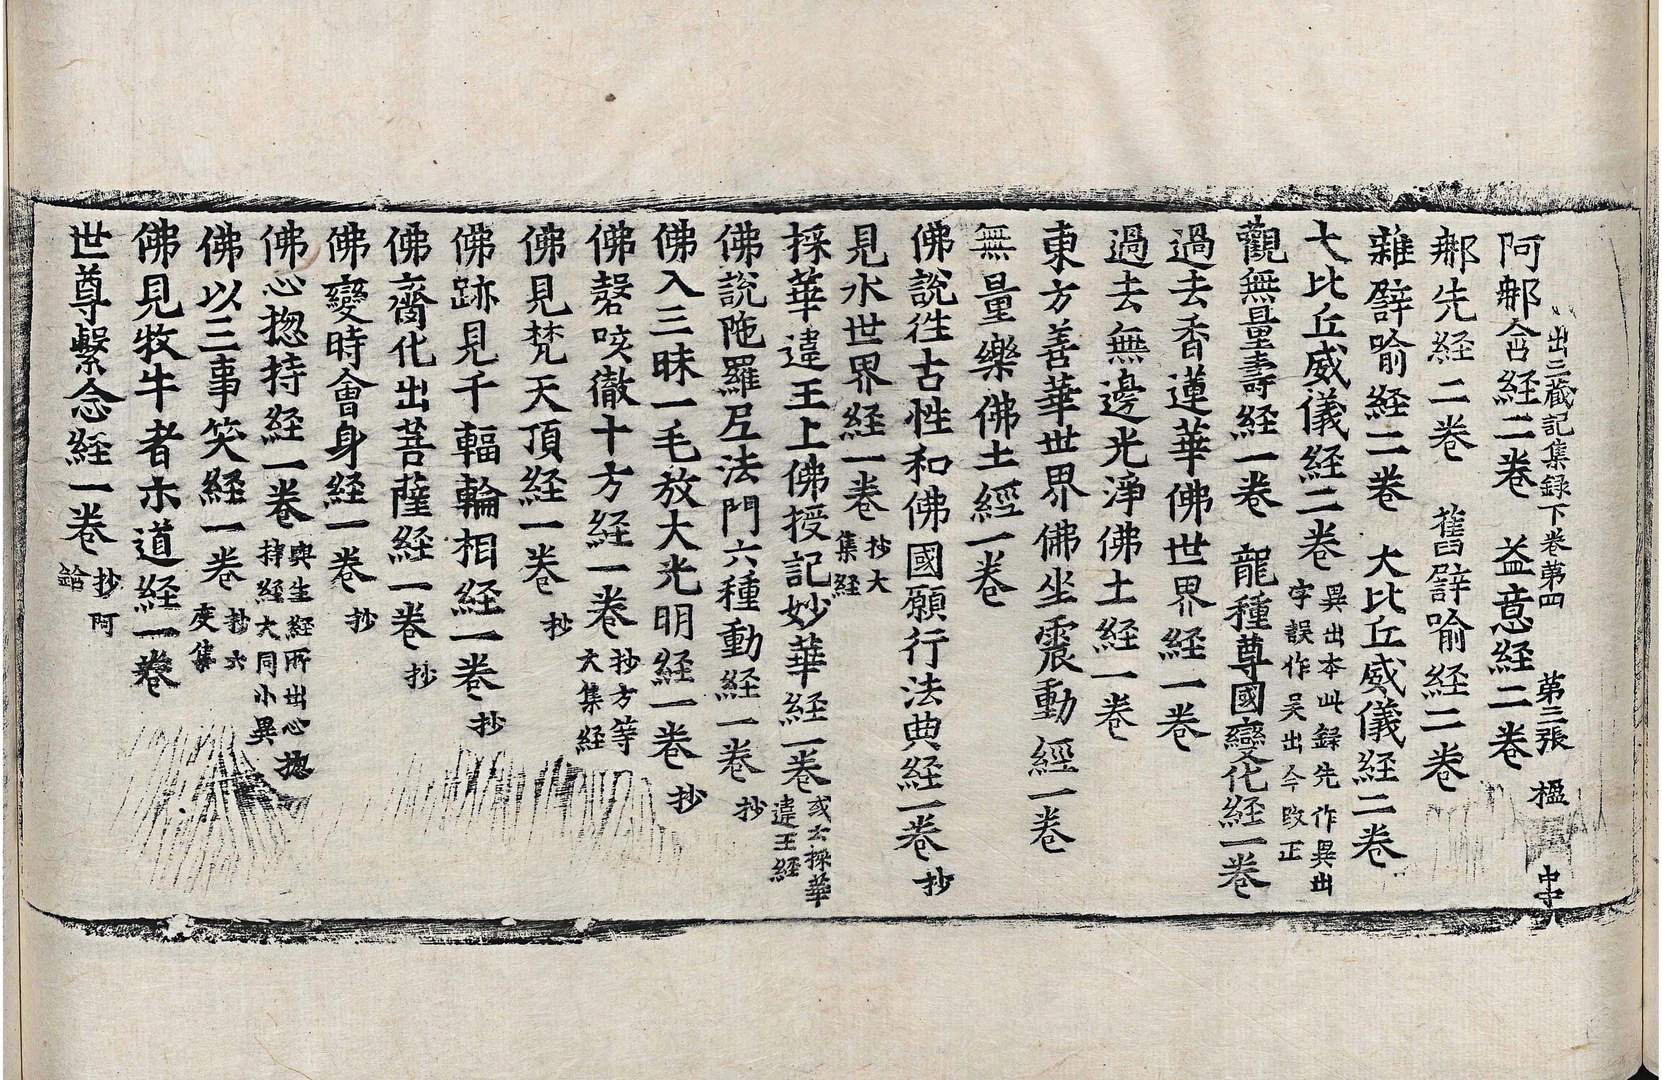 出三藏記集録下卷第四 第三張 楹
阿郍含経二卷 益意経二卷
郍先経二卷 舊譬喻経二卷
雜譬喻経二卷 大比丘威儀経二卷
大比丘威儀経二卷 異出本此録先作異出字誤作吴出今改正
觀無量壽経一卷 龍種尊國變化経一卷
過去香蓮華佛世界経一卷
過去無邊光淨佛土経一卷
東方善華世界佛坐震動經一卷
無量樂佛土經一卷
佛說往古性和佛國願行法典経一卷 抄
見水世界経一卷 抄大集経
採華違王上佛授記妙華経一卷 或云採華違王経
佛說陁羅尼法門六種動経一卷 抄
佛入三昧一毛放大光明経一卷 抄
佛謦咳徹十方経一卷 抄方等大集経
佛見梵天頂経一卷 抄
佛跡見千輻輪相経一卷 抄
佛齋化出菩薩経一卷 抄
佛變時會身経一卷 抄
佛心揔持経一卷 與生経所出心揔持経大同小異
佛以三事笑経一卷 抄六度集
佛見牧牛者示道経一卷
世尊繫念経一卷 抄阿含